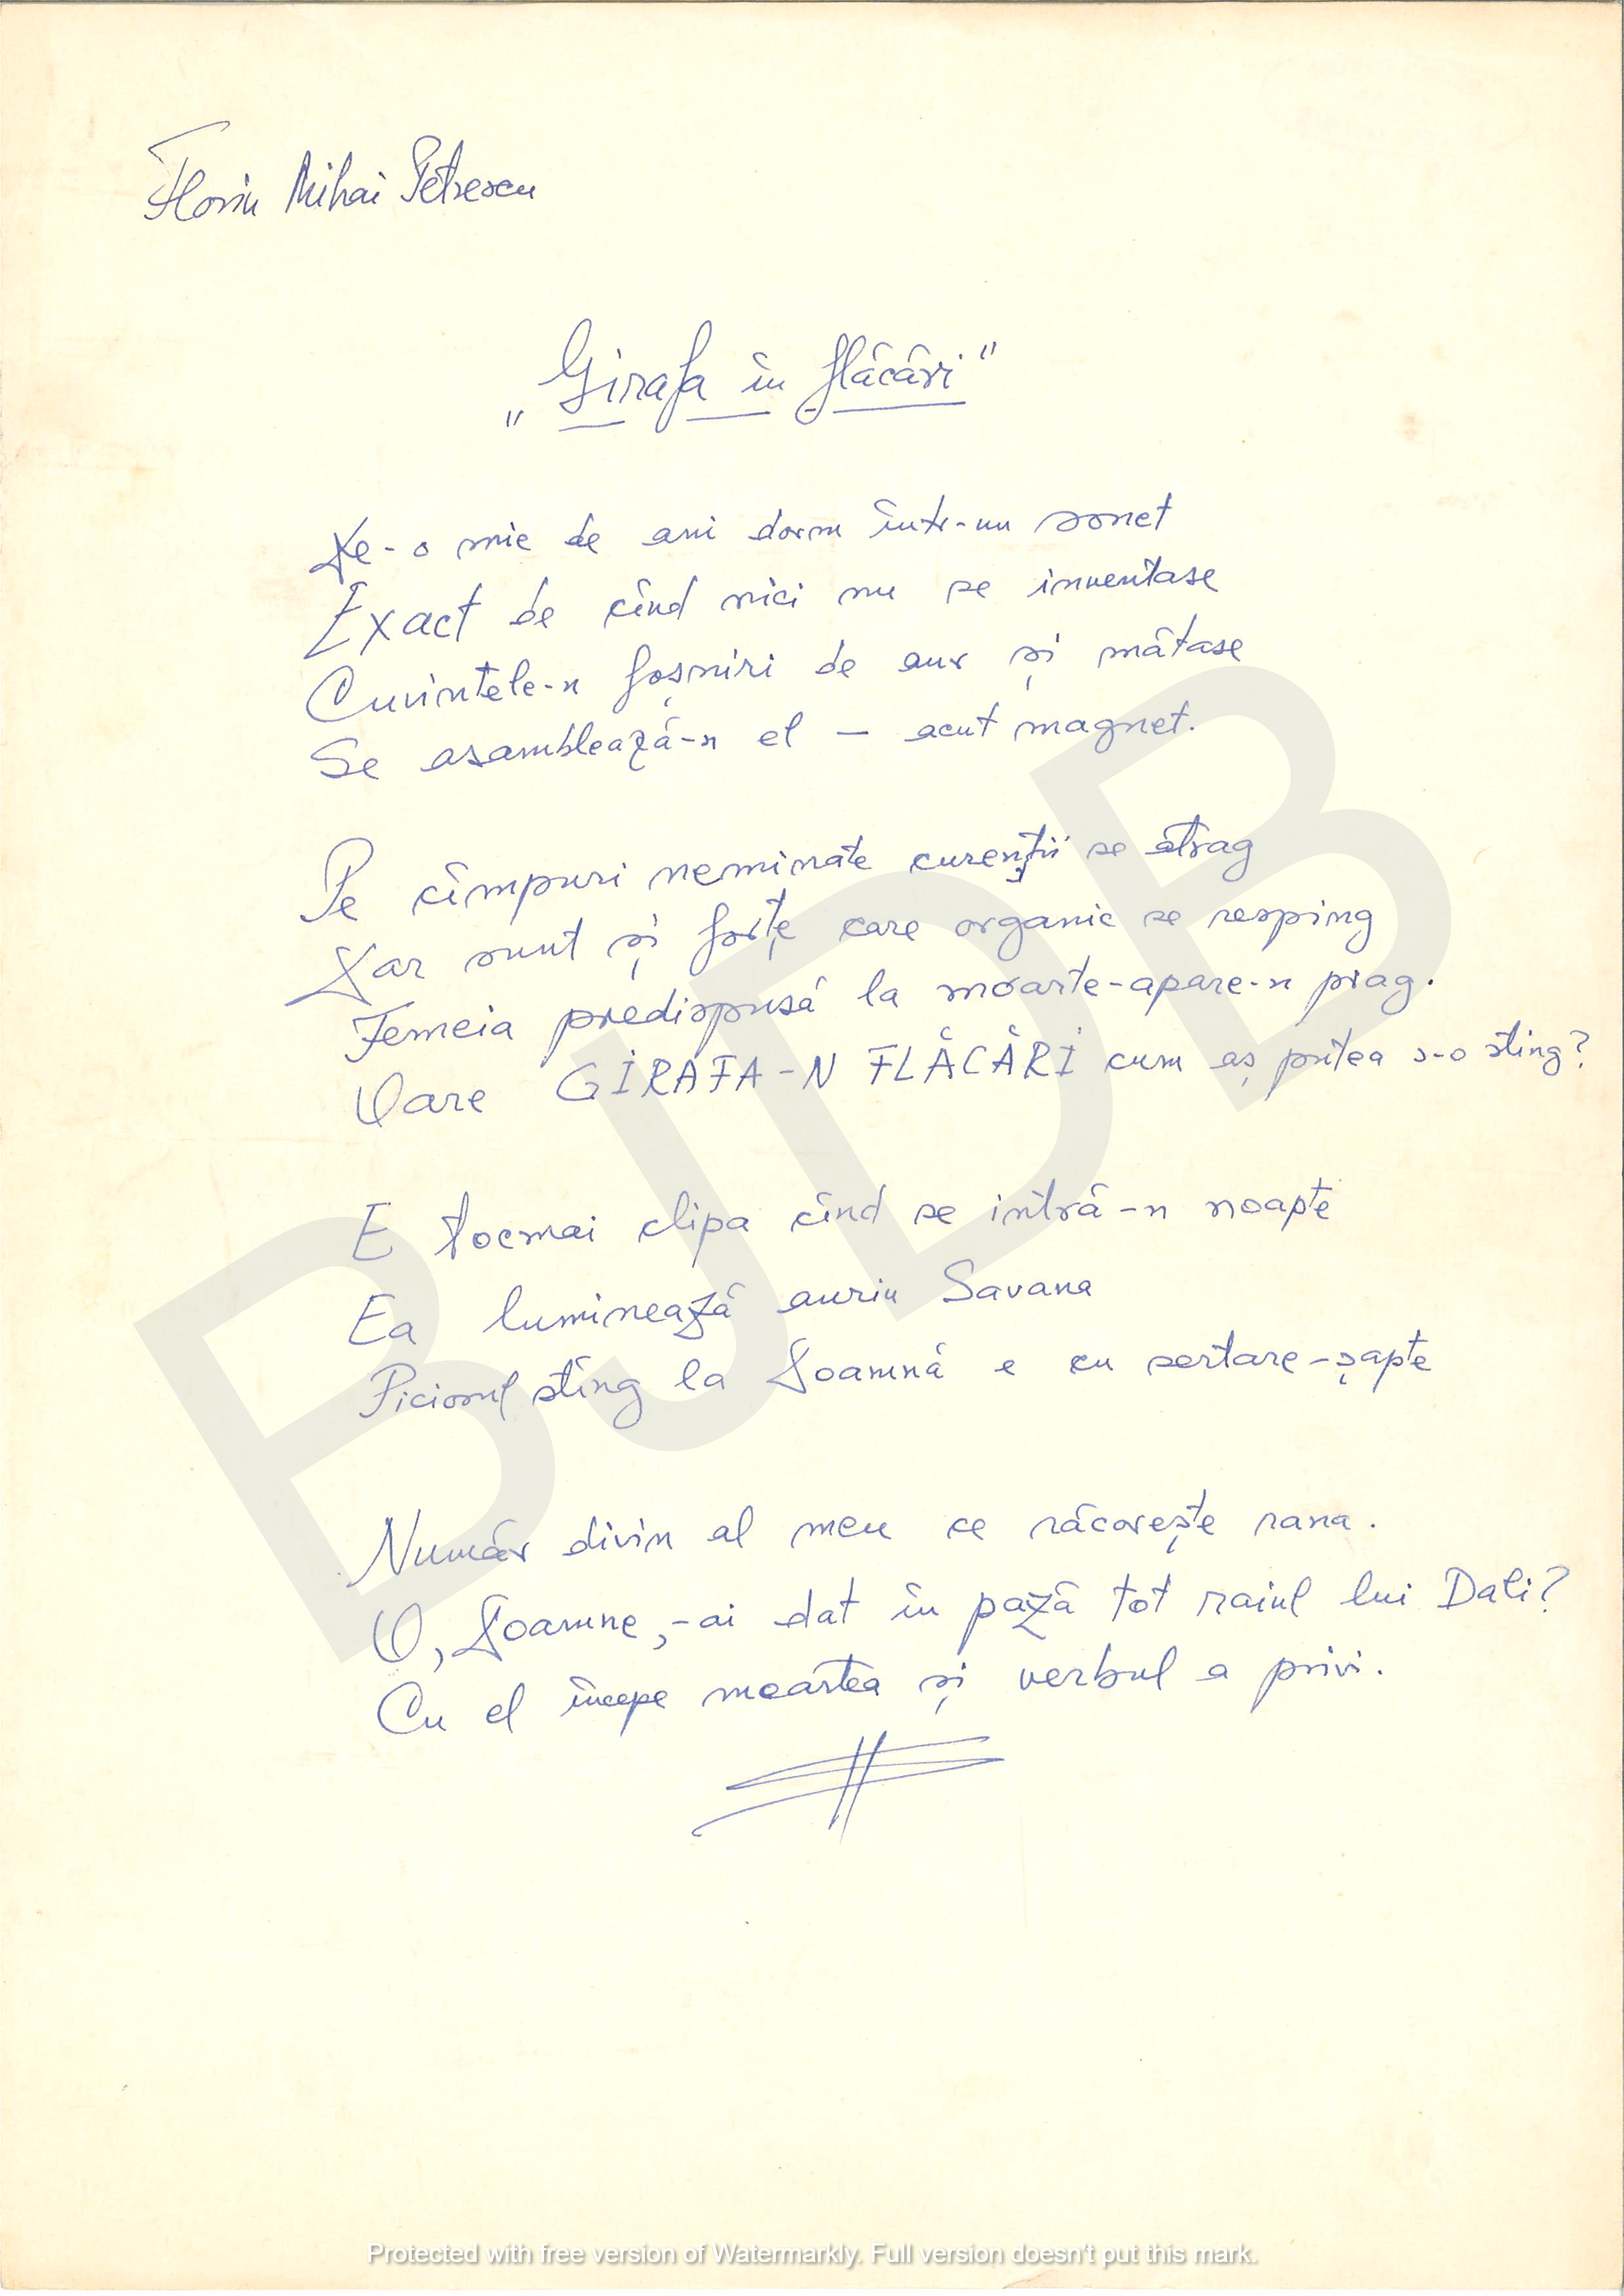 Florin Mihai Petrescu
„Girafa în flăcări"
De-o mie de ani dorm într-un sonet
Exact de cînd nici nu se inventase
Cuvintele-n foșniri de aur și mătase
Se asamblează-n el – acut magnet.
Pe cîmpuri neminate curenții se atrag
Dar sunt și forțe care organic se resping
Femeia predispusă la moarte-apare-n prag.
Oare GIRAFA-N FLĂCĂRI cum aș putea s-o sting?
E tocmai clipa cînd se intră-n noapte
Ea luminează auriu Savana
Piciorul stîng la Doamnă e cu sertare-șapte
Număr divin al meu ce răcorește rana.
O, Doamne,-ai dat în pază tot raiul lui Dali?
Cu el începe moartea și verbul a privi.
BJDB
Protected with free version of Watermarkly. Full version doesn't put this mark.